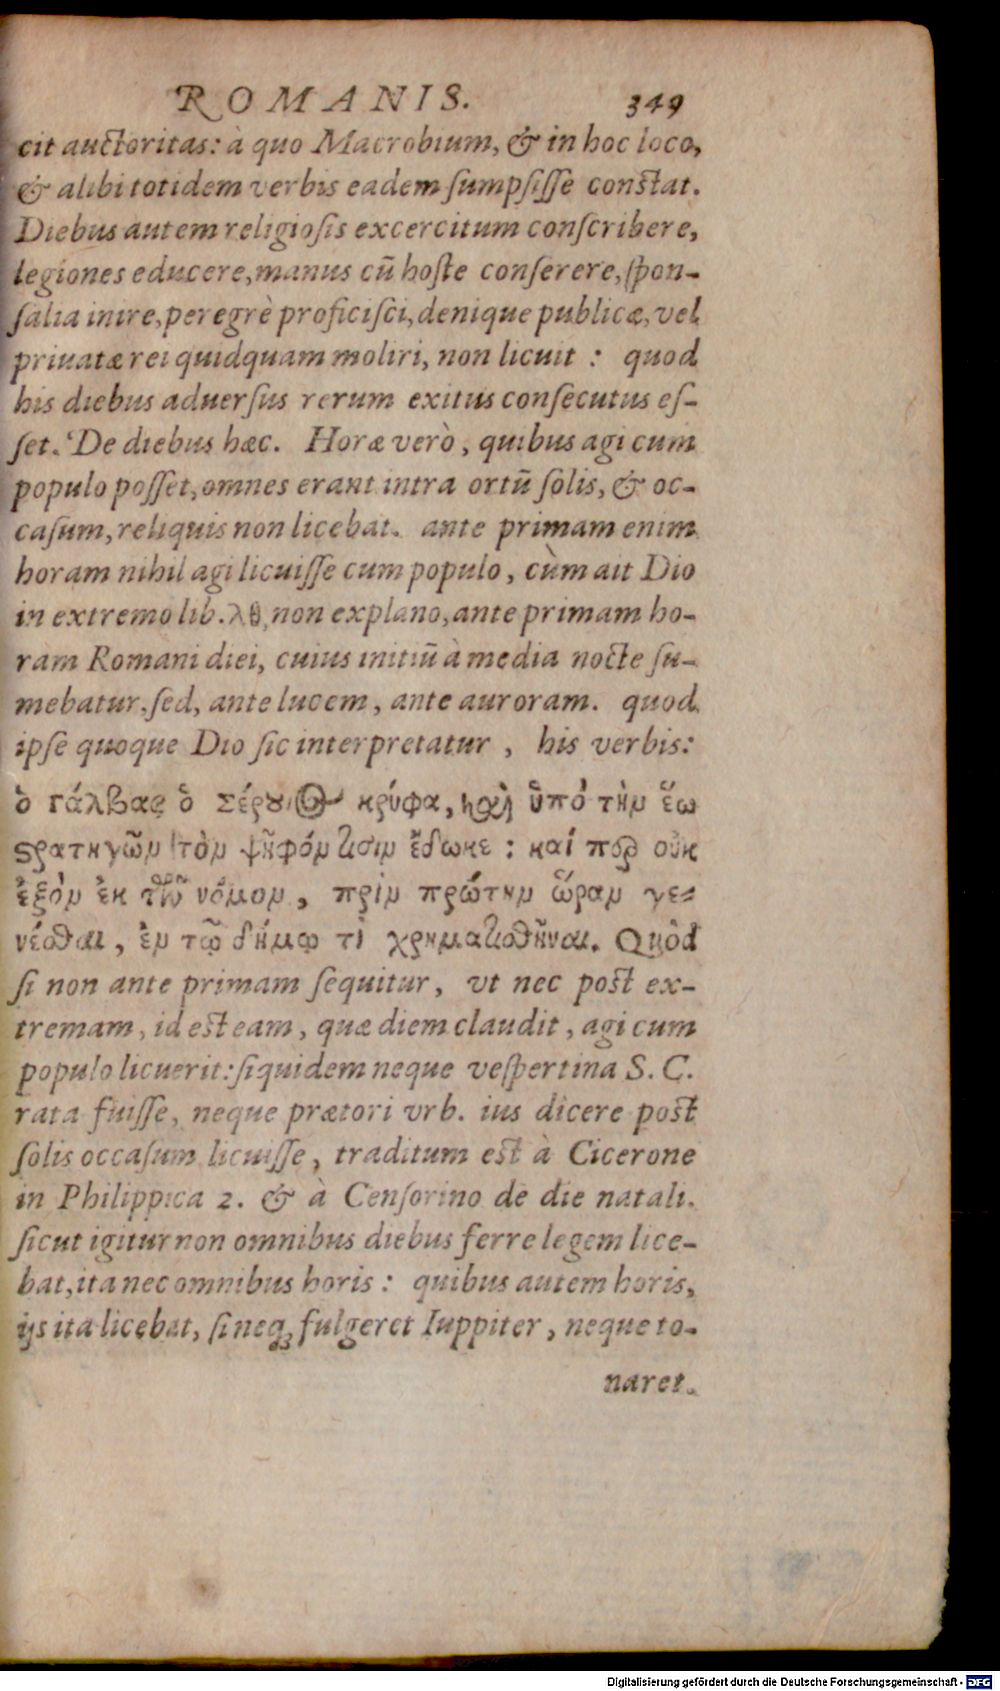 ROMANIS. 349
cit auctoritas: à quo Macrobium, & in hoc loco,
& alibi totidem verbis eadem sumpsisse constat.
Diebus autem religiosis excercitum conscribere,
legiones educere, manus cũ hoste conserere, spon-
salia inire, peregrè proficisci, denique publicæ, vel
priuatæ rei quidquam moliri, non licuit : quod
his diebus aduersus rerum exitus consecutus es-
set. De diebus hæc. Horæ verò, quibus agi cum
populo posset, omnes erant intra ortũ solis, & oc-
casum, reliquis non licebat. ante primam enim
horam nihil agi licuisse cum populo, cùm ait Dio
in extremo lib. λθ, non explano, ante primam ho-
ram Romani diei, cuius initiũ à media nocte su-
mebatur. sed, ante lucem, ante auroram. quod
ipse quoque Dio sic interpretatur, his verbis:
ὁ γάλβας ὁ Σέρουιος κρύφα, καὶ ὑπό τὴν ἕω
στρατηγῶν τὸν ψῆφόν τισιν ἔδωκε : καί περ οὐκ
ἐξὸν ἐκ τῶν νόμον, πρὶν πρώτην ὥραν γε-
νέσθαι, ἐν τῷ δήμῳ τὶ χρηματισθῆναι. Quòd
si non ante primam sequitur, vt nec post ex-
tremam, id est eam, quæ diem claudit, agi cum
populo licuerit: siquidem neque vespertina S. C.
rata fuisse, neque prætori vrb. ius dicere post
solis occasum licuisse, traditum est à Cicerone
in Philippica 2. & à Censorino de die natali.
sicut igitur non omnibus diebus ferre legem lice-
bat, ita nec omnibus horis : quibus autem horis,
ijs ita licebat, si neq; fulgeret Iuppiter, neque to-
naret.
Digitalisierung gefördert durch die Deutsche Forschungsgemeinschaft - DFG